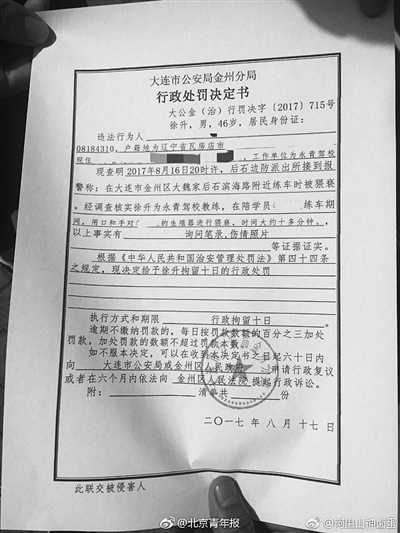 大连市公安局金州分局
行政处罚决定书
大公金（治）行罚决字〔2017〕715号
违法行为人 徐升，男，46岁，居民身份证：
08184310，户籍地为辽宁省瓦房店市
现住 ，工作单位为永青驾校
现查明2017年8月16日20时许，后石边防派出所接到报
警称：在大连市金州区大魏家后石滨海路附近练车时被猥亵
。经调查核实徐升为永青驾校教练，在陪学员 练车期
间，用口和手对 的生殖器进行猥亵，时间大约十多分钟。
以上事实有 询问笔录,伤情照片
等证据证实。
根据《中华人民共和国治安管理处罚法》第四十四条
之规定，现决定给予徐升拘留十日的行政处罚
执行方式和期限 行政拘留十日
逾期不缴纳罚款的，每日按罚款数额的百分之三加处
罚款，加处罚款的数额不超过罚款本数。
如不服本决定，可以在收到本决定书之日起六十日内
向 大连市公安局或金州区人民政府 申请行政复议
或者在六个月内依法向 金州区人民法院 提起行政诉讼。
附： 清单共 份
二〇一七年八月十七日
此联交被侵害人
@北京青年报
@阿里山神卤蛋